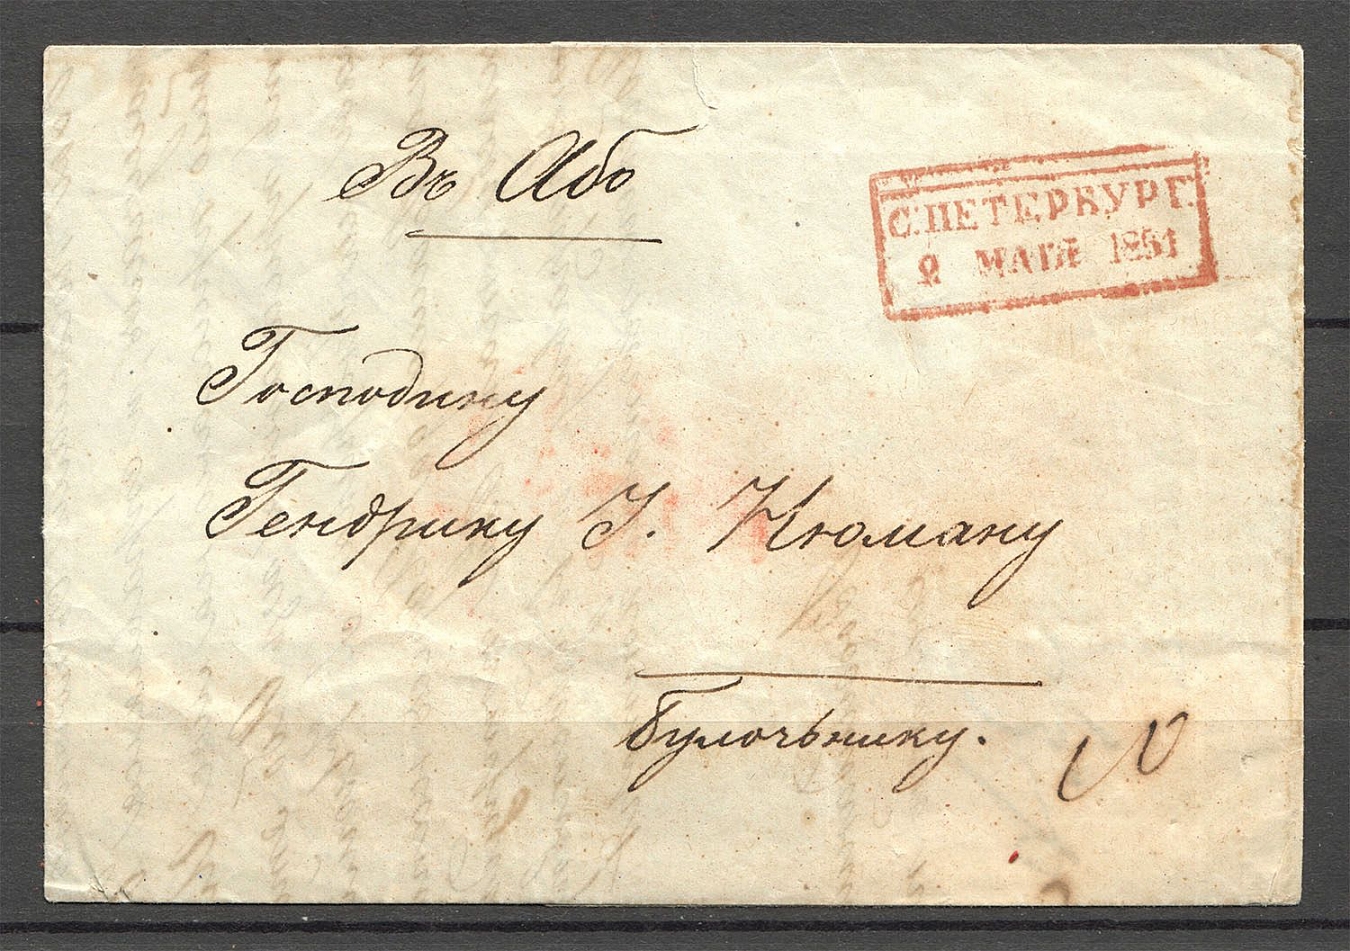 Въ Або
С.ПЕТЕРБУРГ.
2 МАІЯ 1851
Господину
Гендрику І. Нюману
булочьнику.